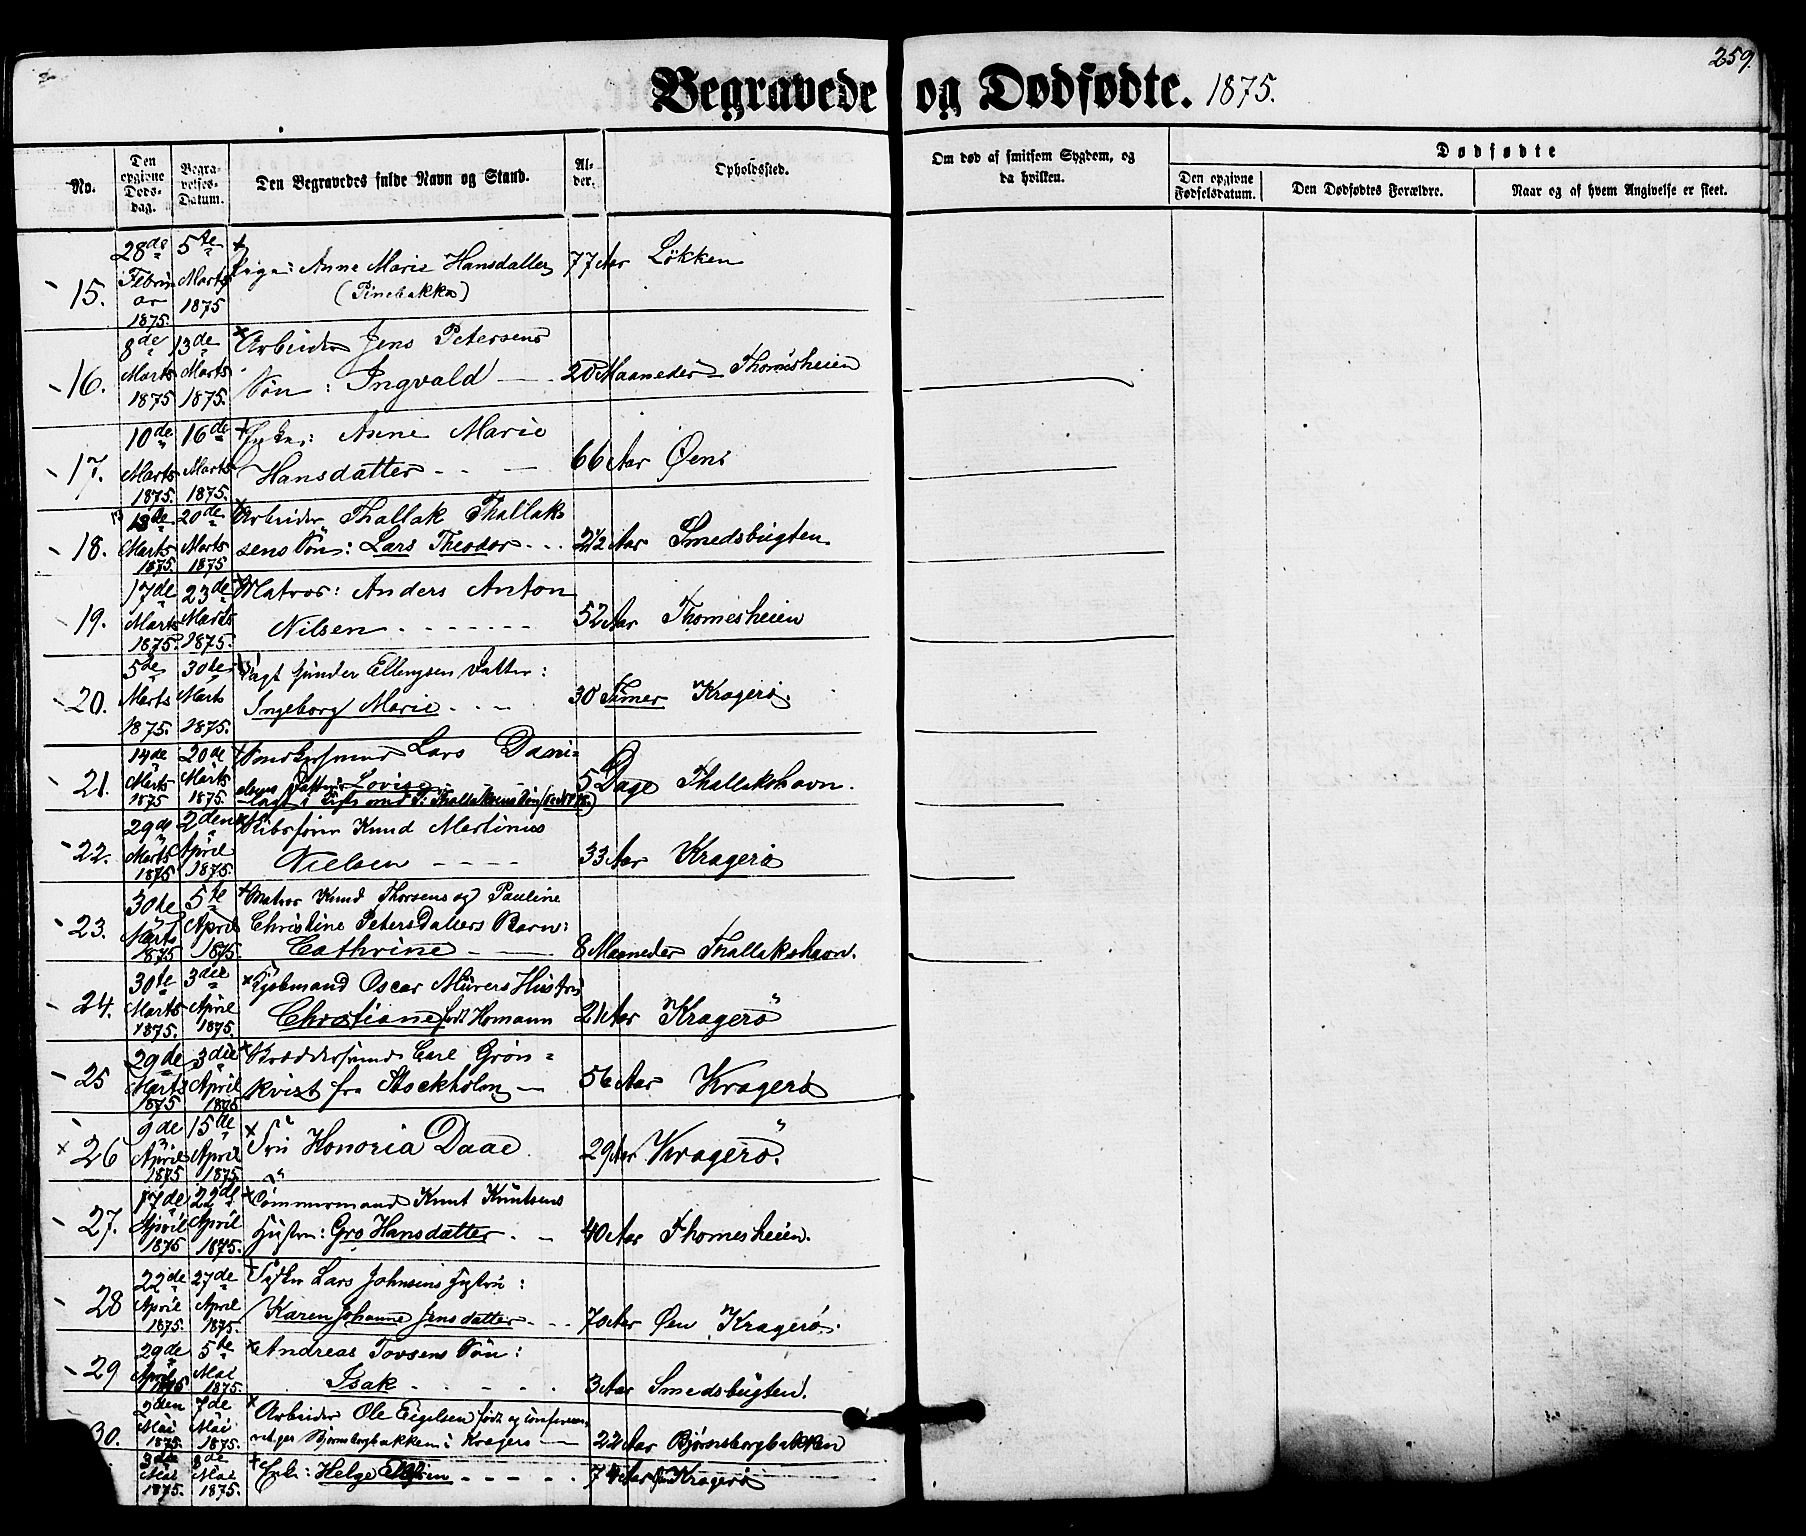 259.
Begravede og Dødfødte. 1875.
No.
Den opgivne Døds-dag.
Begra-velses-Datum.
Den Begravedes fulde Navn og Stand.
Al-der.
Opholdssted.
Om død af smitsom Sygdom, og da hvilken.
Dødfødte
Den opgivne Fødselsdatum.
Den Dødfødtes Forældre.
Naar og af hvem Angivelse er skeet.
15. 28de Februar 1875. 5te Marts 1875 Pige: Anne Marie Hansdatter 77 Aar Løkken
(Pinebakka)
16. 8de Marts 1875 13de Marts 1875. Arbeider Jens Petersens
Søn: Ingvald 20 Maaneder Thomesheien
17. 10de Marts 1875. 16de Marts 1875. Enke: Anne Marie
Hansdatter 66 Aar Øens
18. 13de Marts 1875. 20de Marts 1875 Arbeider Thallak Thallak-
sens Søn: Lars Theodor 2 1/2 Aar Smedsbugten.
19. 17de Marts 1875. 23de Marts 1875. Matros: Anders Anton
Nilsen 52 Aar Thomesheien
20. 5de Marts 1875. 30te Marts 1875. Vagt Gunder Ellengsen Datter:
Ingeborg Marie 30 Timer Kragerø.
21. 14de Marts 1875 20de Marts 1875. Lars Dani-
elsens Datter: Lovise 5 Dage Thallakshavn.
lagt i Kiste med T: Thallaksens Søn
22. 29de Marts 1875 2den April 1875. Skibsfører Knud Martinius
Nielsen 33 Aar Kragerø
23. 30te Marts 1875 5te April 1875. Matros Knud Thorsens og Pauline
Christine PetersDatters Barn:
Cathrine 8 Maaneder Thallakshavn.
24. 30te Marts 1875. 3die April 1875. Kjøbmand Oscar Mürers Hustru
Christiane født Homann 21 Aar Kragerö
25 29de Marts 1875 3die April 1875 Carl Grön=
kvist fra Stockholm 56 Aar Kragerø
26 9de April 1875 15de April 1875. Fru Honoria Daae. 29 Aar Kragerö.
27. 17de April 1875 22de April 1875. Tømmermand Knut Knutsens
Hustru: Gro Hansdatter 40 Aar Thomesheien.
28 22de April 1875. 27de April 1875. Fisker Lars Johnsens Hustru:
Karen Johanne Jensdatter 70 Aar Øen Kragerø.
29 29de April 1875 5te Mai 1875. Andreas Tovsens Søn:
Isak 3 Aar Smedsbugten.
30. 2den Mai 1875. 7de Mai 1875. Arbeider Ole Eigelsen født og
Bjørnsborgbakken i Kragerø 22 Aar Bjørnsborgbakken
3die Mai 1875. 8de Mai 1875. Enke: Helge 74 Aar Kragerø